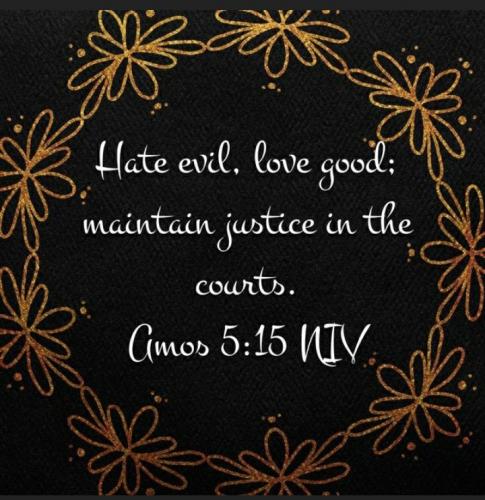 Hate evil, love good;
maintain justice in the
courts.
Amos 5:15 NIV